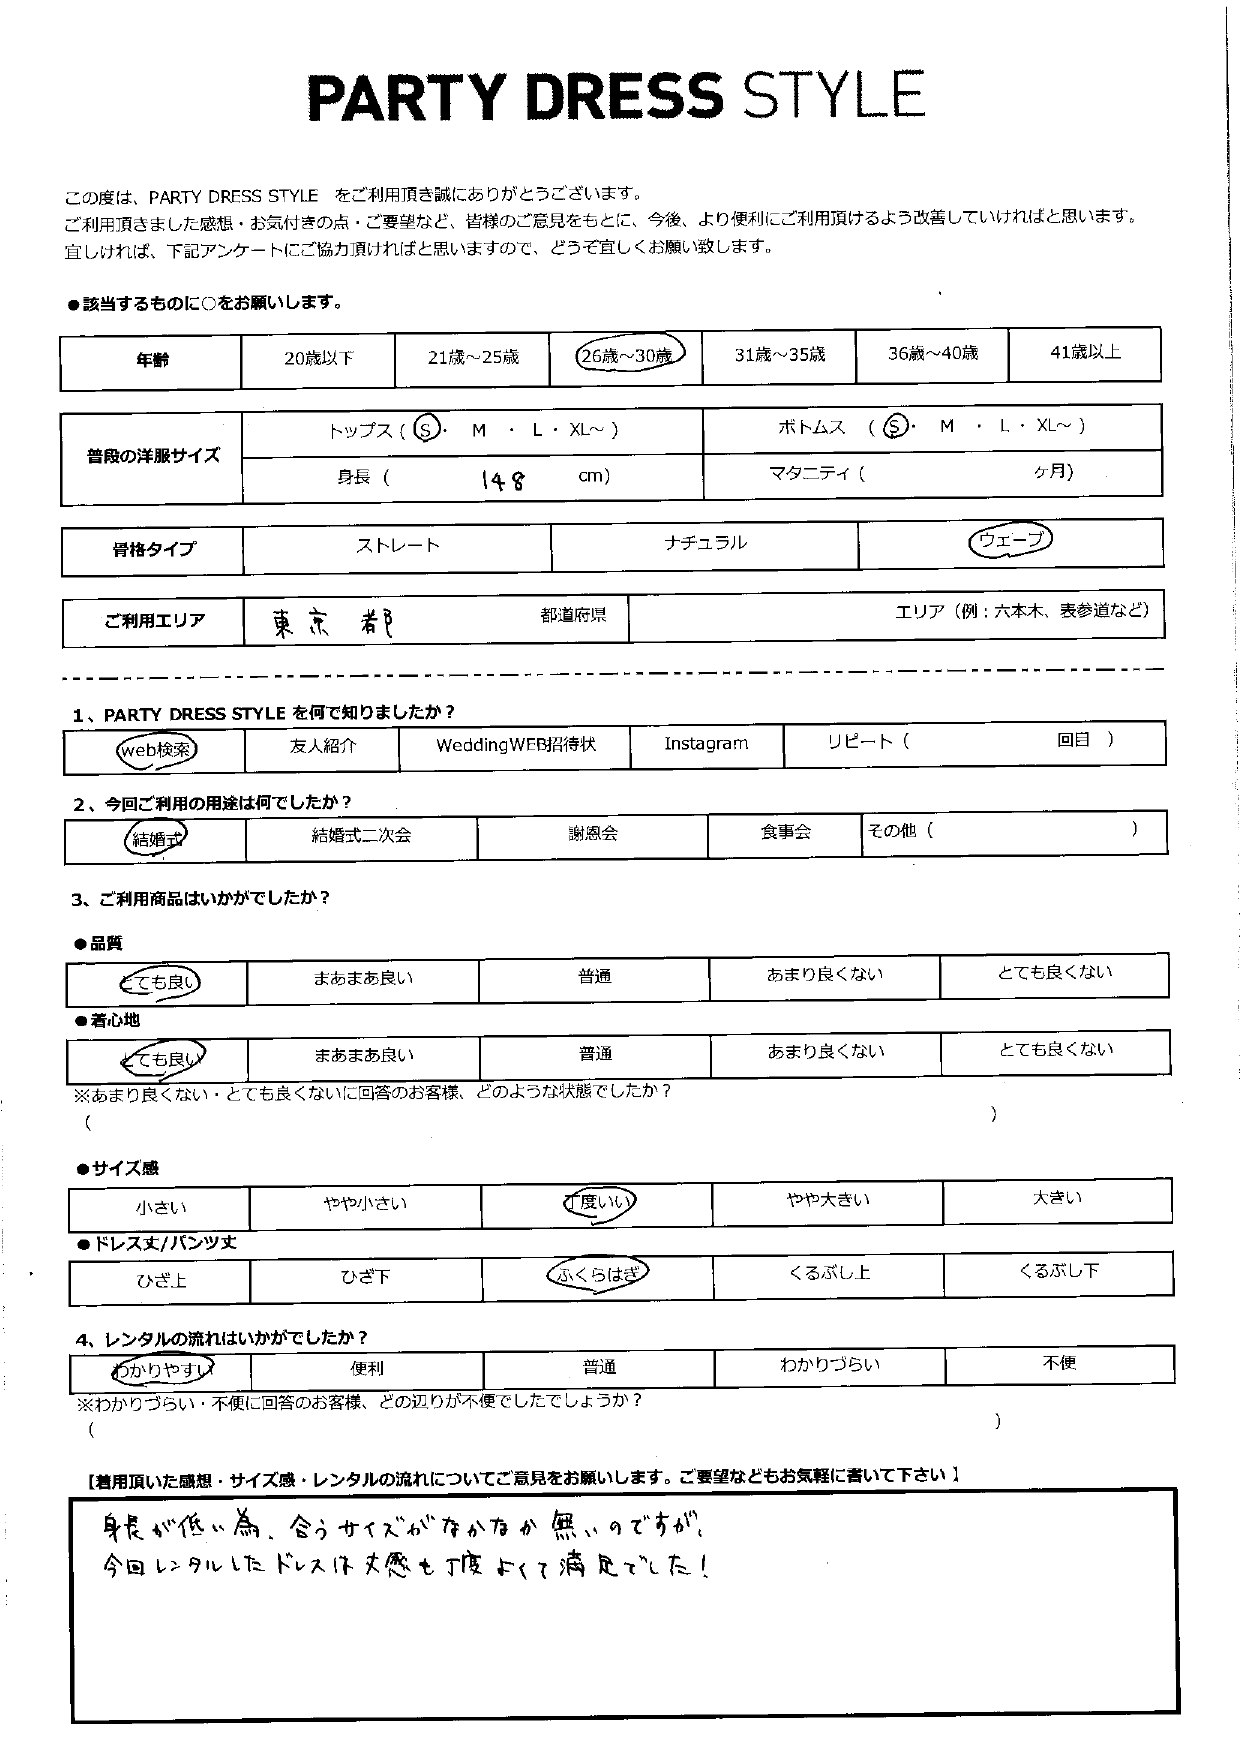 PARTY DRESS STYLE
この度は、PARTY DRESS STYLE をご利用頂き誠にありがとうございます。
ご利用頂きました感想・お気付きの点・ご要望など、皆様のご意見をもとに、今後、より便利にご利用頂けるよう改善していければと思います。
宜しければ、下記アンケートにご協力頂ければと思いますので、どうぞ宜しくお願い致します。
●該当するものに○をお願いします。
年齢 20歳以下 21歳～25歳 26歳～30歳 31歳～35歳 36歳～40歳 41歳以上
普段の洋服サイズ トップス ( S ・ M ・ L ・ XL～ ) ボトムス ( S ・ M ・ L ・ XL～ )
身長 ( 148 cm) マタニティ ( ケ月)
骨格タイプ ストレート ナチュラル ウェーブ
ご利用エリア 東京都 都道府県 エリア（例：六本木、表参道など）
1、PARTY DRESS STYLE を何で知りましたか？
web検索 友人紹介 WeddingWEB招待状 Instagram リピート ( 回目 )
2、今回ご利用の用途は何でしたか？
結婚式 結婚式二次会 謝恩会 食事会 その他 ( )
3、ご利用商品はいかがでしたか？
●品質
とても良い まあまあ良い 普通 あまり良くない とても良くない
●着心地
とても良い まあまあ良い 普通 あまり良くない とても良くない
※あまり良くない・とても良くないに回答のお客様、どのような状態でしたか？
( )
●サイズ感
小さい やや小さい 丁度いい やや大きい 大きい
●ドレス丈/パンツ丈
ひざ上 ひざ下 ふくらはぎ くるぶし上 くるぶし下
4、レンタルの流れはいかがでしたか？
わかりやすい 便利 普通 わかりづらい 不便
※わかりづらい・不便に回答のお客様、どの辺りが不便でしたでしょうか？
( )
【着用頂いた感想・サイズ感・レンタルの流れについてご意見をお願いします。ご要望などもお気軽に書いて下さい】
身長が低い為、合うサイズがなかなか無いのですが、
今回レンタルしたドレスは丈感も丁度よくて満足でした！